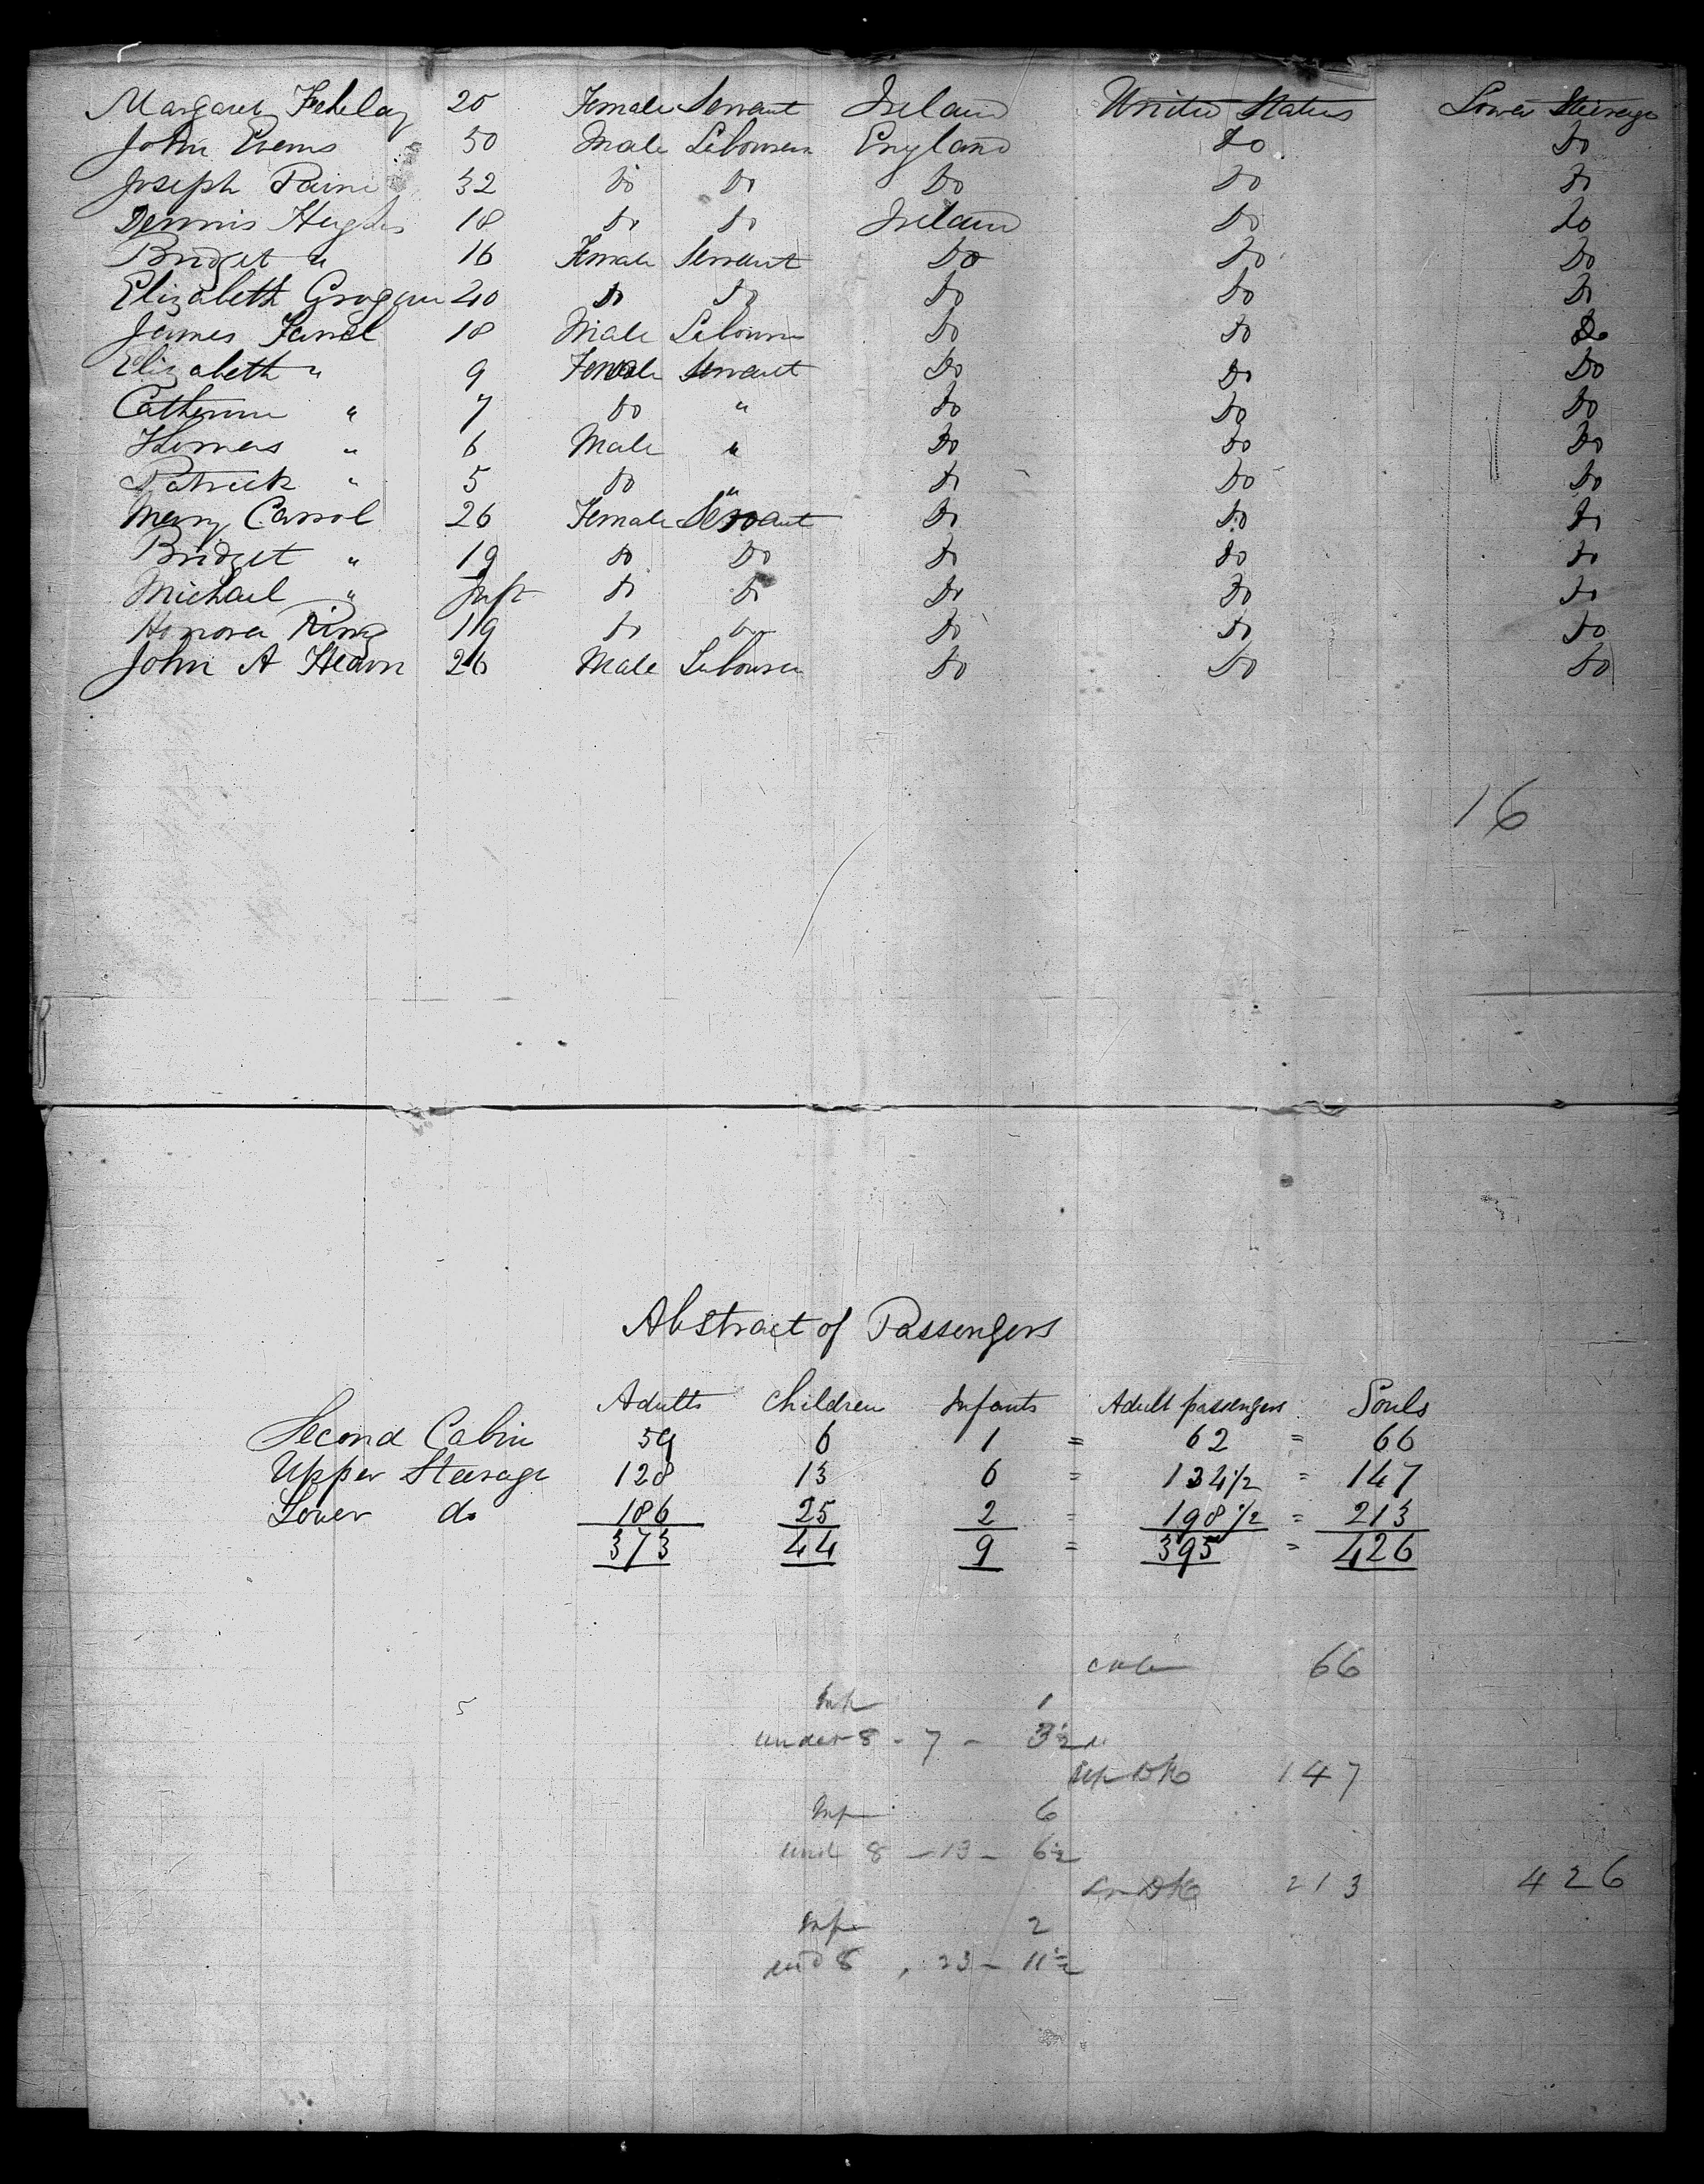 Margaret Fehelay 20 Female Servant Ireland United States Lower Steerage
John Evens 50 Male Labourer England Do Do
Joseph Paine 32 Do Do Do Do Do
Dennis Hughes 18 Do Do Ireland Do Do
Bridget " 16 Female Servant Do Do Do
Elizabeth Grogan 20 Do Do Do Do Do
James Farrel 18 Male Labourer Do Do Do
Elizabeth " 9 Female Servant Do Do Do
Catherine " 7 Do " Do Do Do
Thomas " 6 Male " Do Do Do
Patrick " 5 Do " Do Do Do
Mary Carrol 26 Female Servant Do Do Do
Bridget " 19 Do Do Do Do Do
Michael " Inft Do Do Do Do Do
Honora King 19 Do Do Do Do Do
John A Hearn 26 Male Labourer Do Do Do
16
Abstract of Passengers
Adults Children Infants Adult passengers Souls
Second Cabin 59 6 1 = 62 = 66
Upper Steerage 128 13 6 = 134 1/2 = 147
Lower do 186 25 2 = 198 1/2 = 213
373 44 9 = 395 = 426
66
Inf 1
under 8 - 7 - 3 1/2
Up DK 147
Inf 6
und 8 - 13 - 6 1/2
Lr DK 213 426
Inf 2
und 8 , 23 - 11 1/2